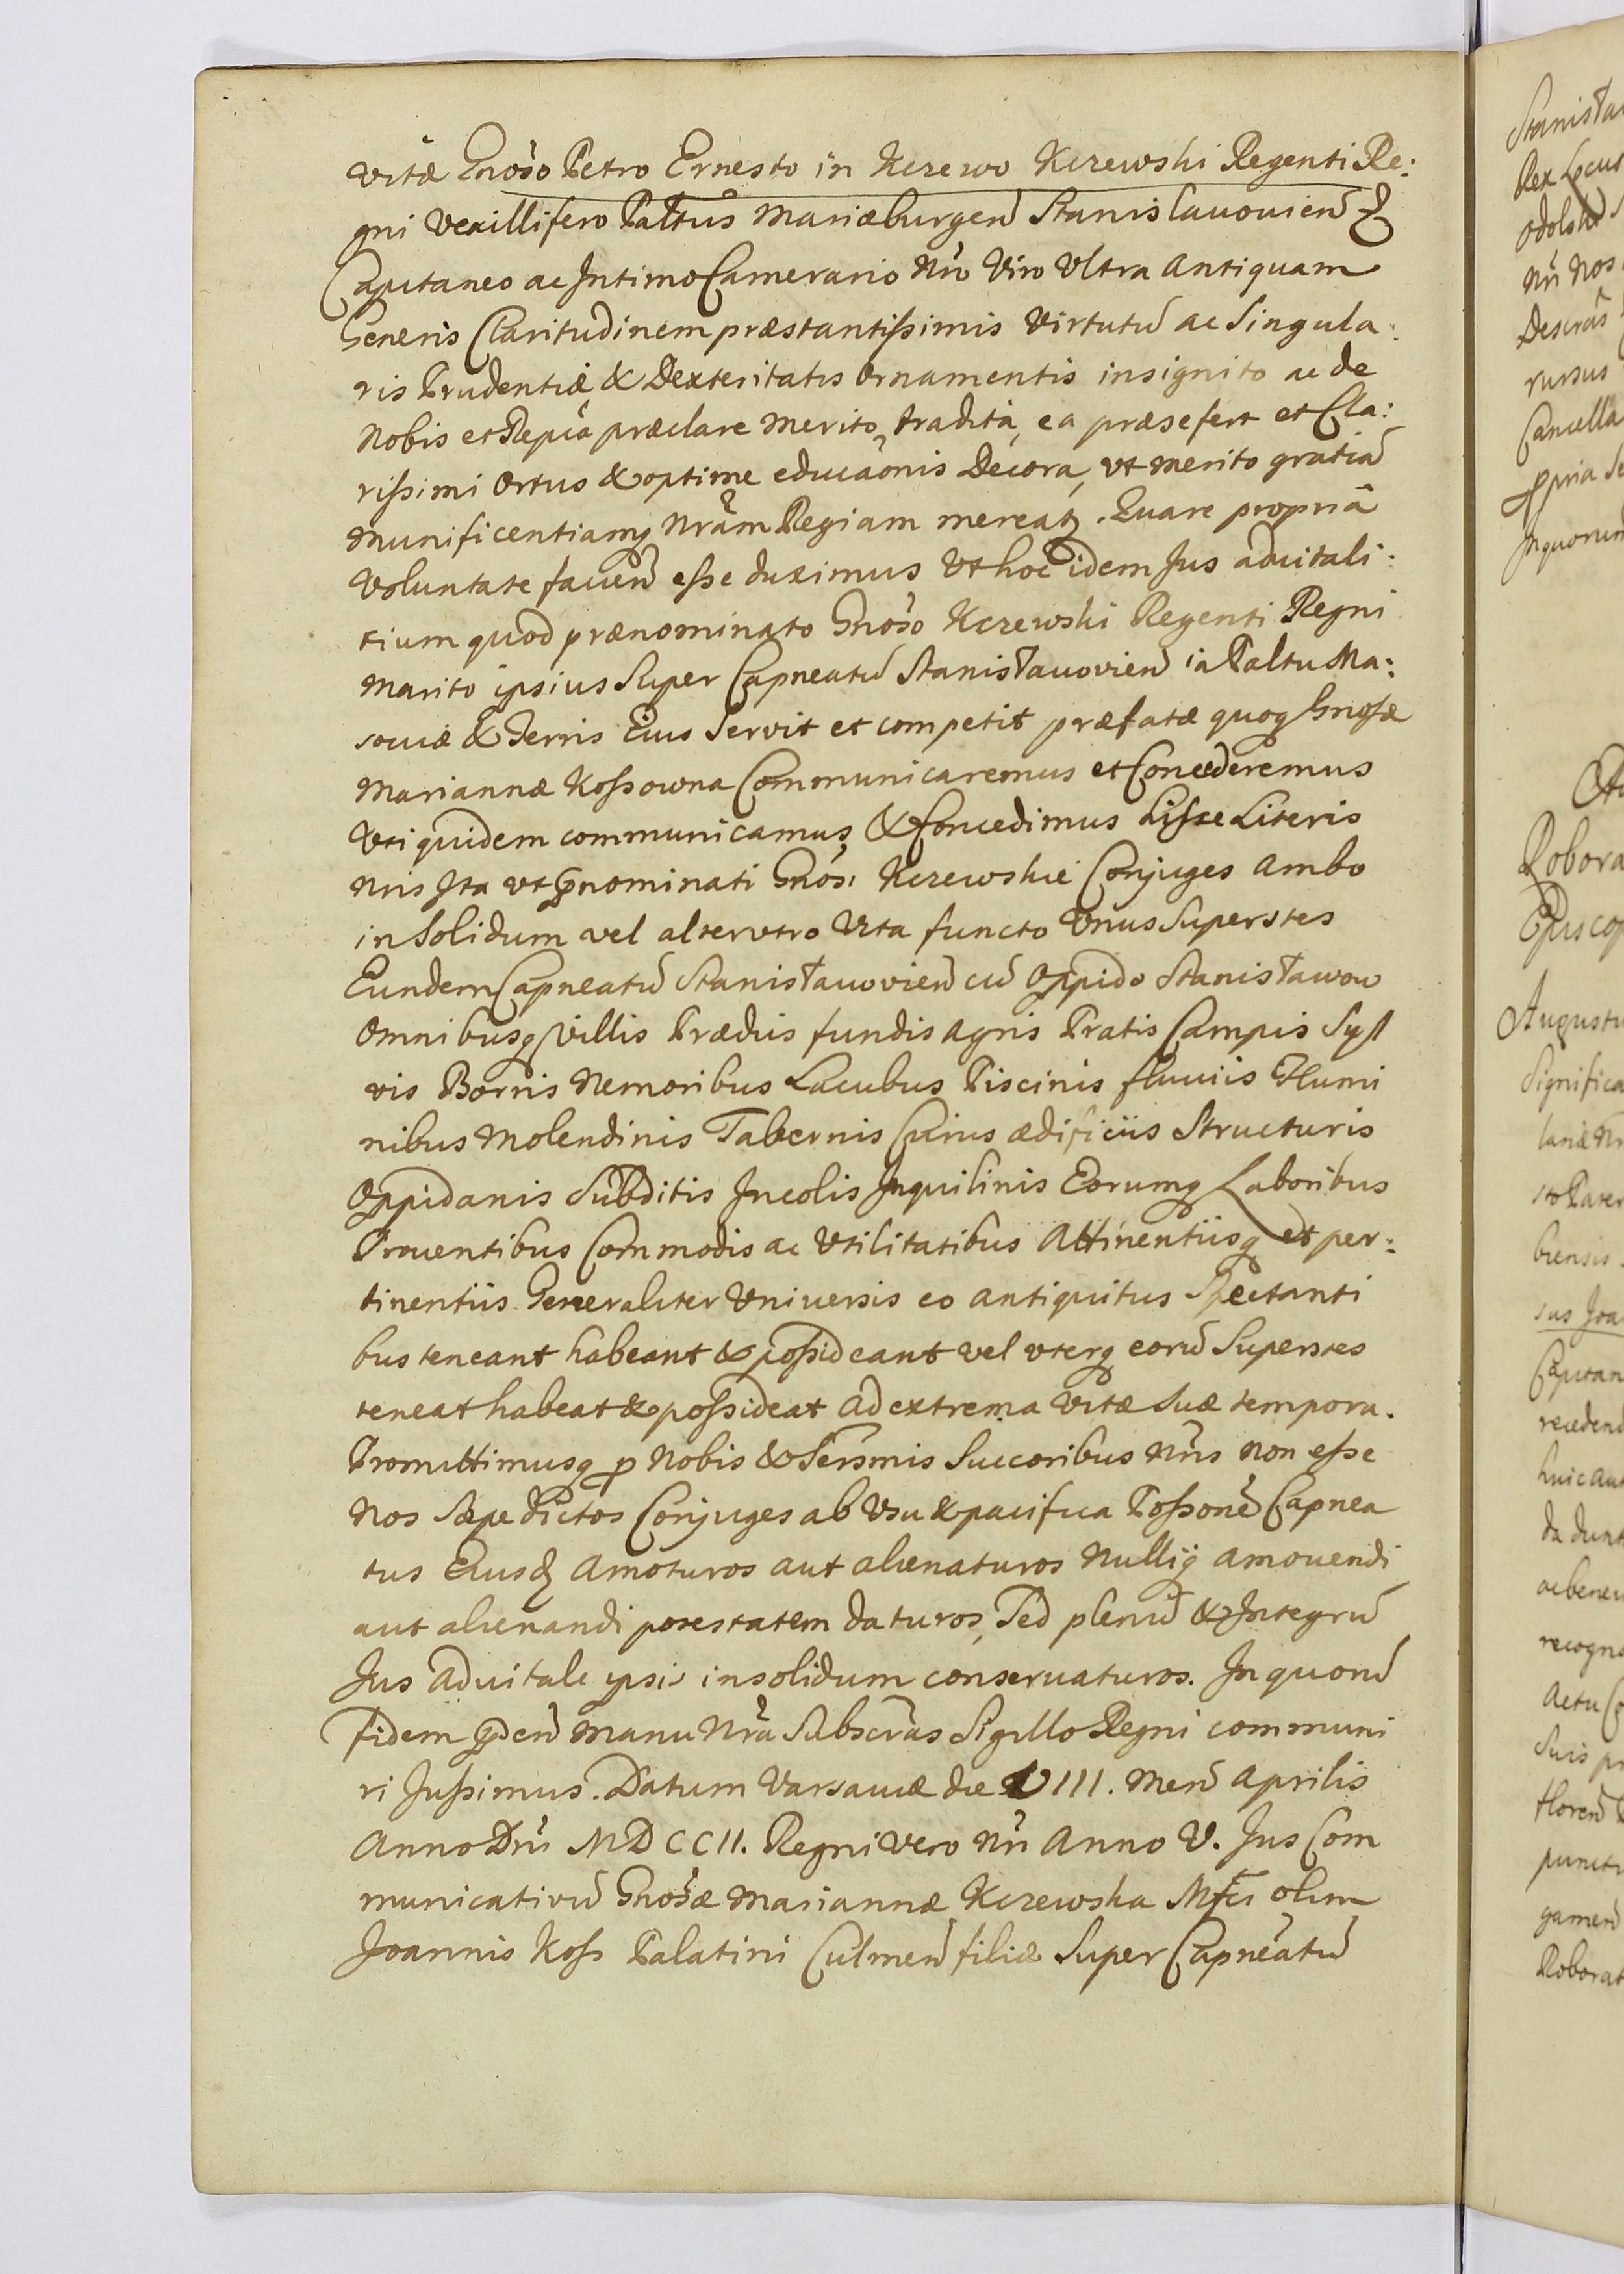 vitæ Gnoso Petro Ernesto in Kczewo Kczewski Regenti Re:
gni Vexillifero Paltus Mariæburgen Stanislavovien &
Capitaneo ac Intimo Camerario Nro Viro Ultra Antiquam
Generis Claritudinem præstantissimis Virtutū ac Singula:
ris Prudentiæ & Dexteritatis Ornamentis insignito ac de
Nobis et Repca præclare merito, tradita, ea præsefert et Cla:
rissimi Ortus & optime educaonis Decora, vt merito gratiā
Munificentiamq Nram Regiam mereatȝ. Quare propriâ
Voluntate faven esse duximus Vt hoc idem Jus advitali:
tium quod prænominato Gnoso Kczewski Regenti Regni
Marito ipsius Super Capneatū Stanisławovien in Paltu Ma:
soviæ & Terris Eius Servit et competit præfatæ quoq Gnosæ
Mariannæ Kossowna Communicaremus et Concederemus
Vti quidem communicamus & Concedimus hisce Literis
Nris Ita vt Pnominati Gnosi Kczewskie Conjuges Ambo
in Solidum vel alterutro Vita functo Vnus Superstes
Eundem Capneatū Stanisławovien cū Oppido Stanisławow
Omnibusq Villis Prædiis fundis Agris Pratis Campis Syl
vis Borris Nemoribus Lacubus Piscinis fluviis Flumi
nibus Molendinis Tabernis Curiis ædificiis Structuris
Oppidanis Subditis Incolis Inquilinis Eorumq Laboribus
Proventibus Commodis ac Utilitatibus Attinentiisq et per:
tinentiis Generaliter Universis eo antiquitus Spectanti
bus teneant habeant & possideant vel vterq eorū Superstes
teneat habeat & possideat ad extrema vitæ suæ tempora.
Promittimusq p Nobis & Sersmis Succoribus Nris non esse
Nos Sæpe dictos Conjuges ab Vsu & pacifica Possone Capnea
tus Eiusd Amoturos aut alienaturos Nulliq amovendi
aut alienandi potestatem daturos, Sed plenū & Integrū
Jus Advitale ipsis insolidum conservaturos. In quorū
fidem Psen Manu Nra Subscras Sigillo Regni communi
ri Jussimus. Datum Varsaviæ die VIII. Men Aprilis
Anno Dni MDCCII. Regni vero Nri Anno V. Jus Com
municativū Gnosæ Mariannæ Kczewska Mfci olim
Joannis Koss Palatini Culmen filiæ Super Capneatū